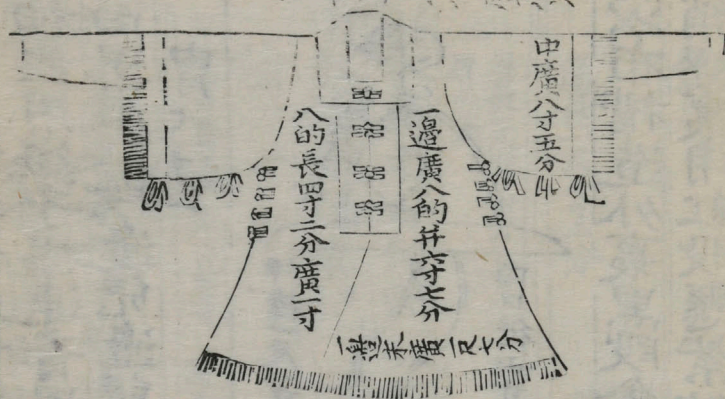 中廣八寸五分
一邊廣八的幷六寸七分
八的長四寸二分廣一寸
一邊末廣一尺七分